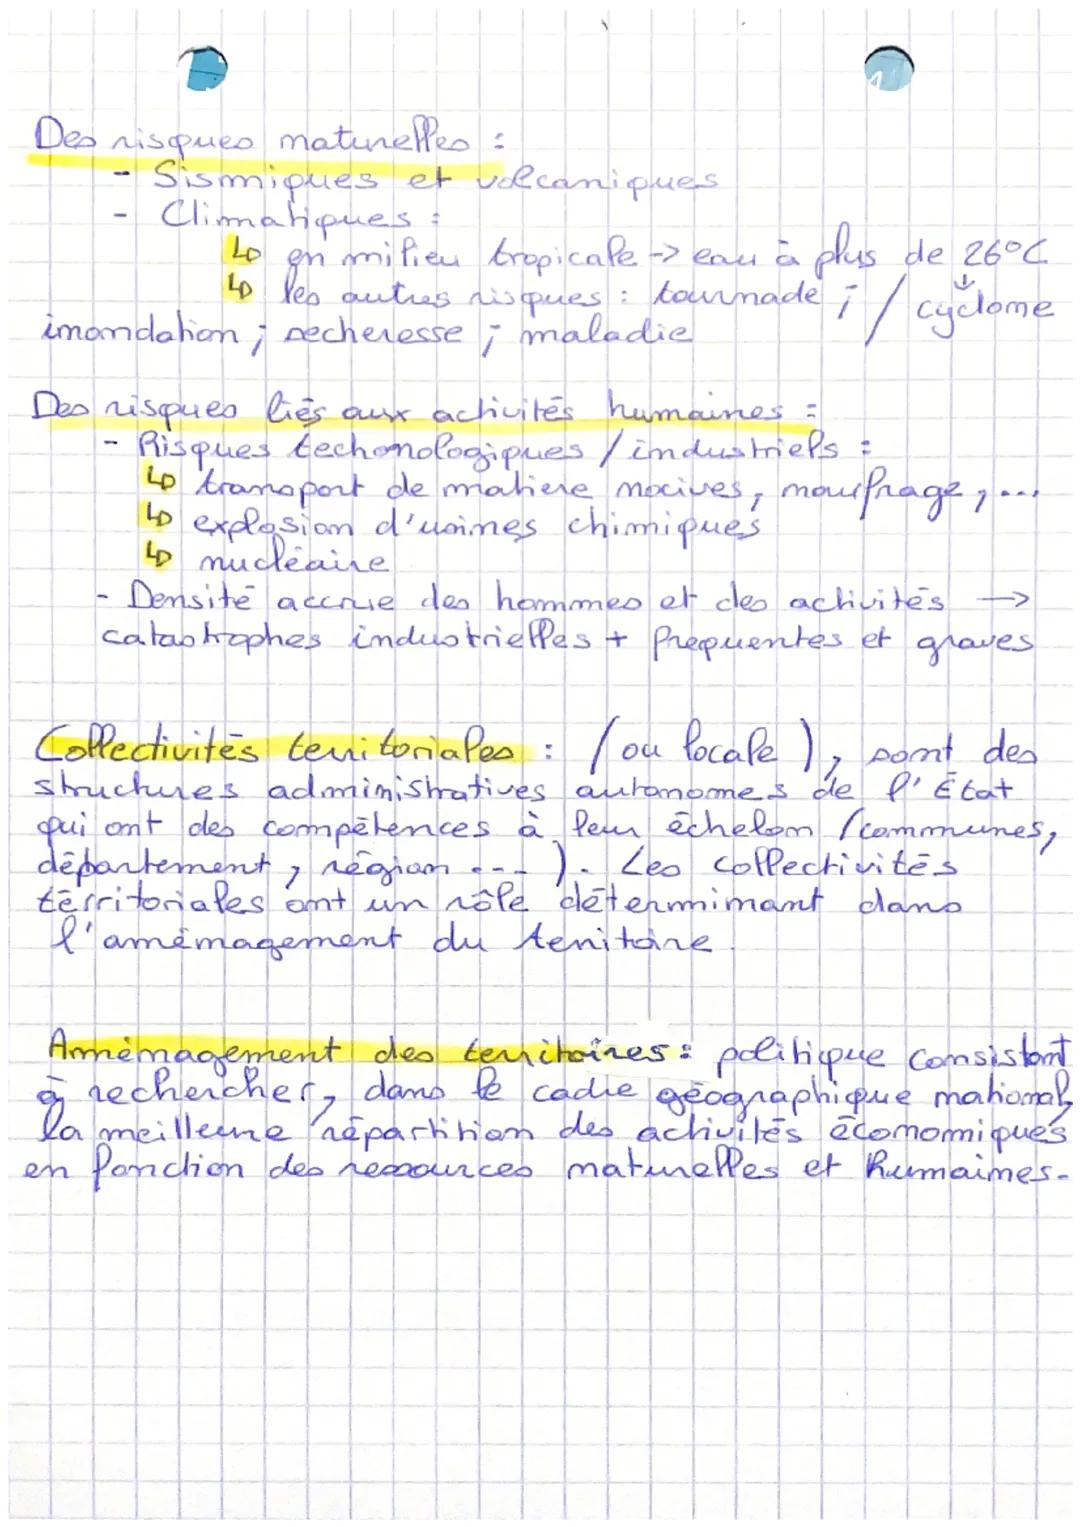 Des risques naturelles :
- Sismiques et volcaniques
- Climatiques :
↳ en milieu tropicale → eau à plus de 26°C
↳ les autres risques : tournade ; / ↓ cyclone
inondation ; secheresse ; maladie
Des risques liés aux activités humaines :
- Risques techonologiques / industriels :
↳ transport de matiere nocives, naufrage, ...
↳ explosion d'usines chimiques
↳ nucléaire
- Densité accrue des hommes et des activités →
catastrophes industrielles + frequentes et graves
Collectivités territoriales : (ou locale), sont des
structures administratives autonomes de l'État
qui ont des compétences à leur échelon (communes,
département, région ...). Les collectivités
térritoriales ont un rôle déterminant dans
l'aménagement du territoire.
Aménagement des territoires : politique consistant
à rechercher, dans le cadre géographique national,
la meilleure répartition des activités économiques
en fonction des ressources naturelles et humaines.